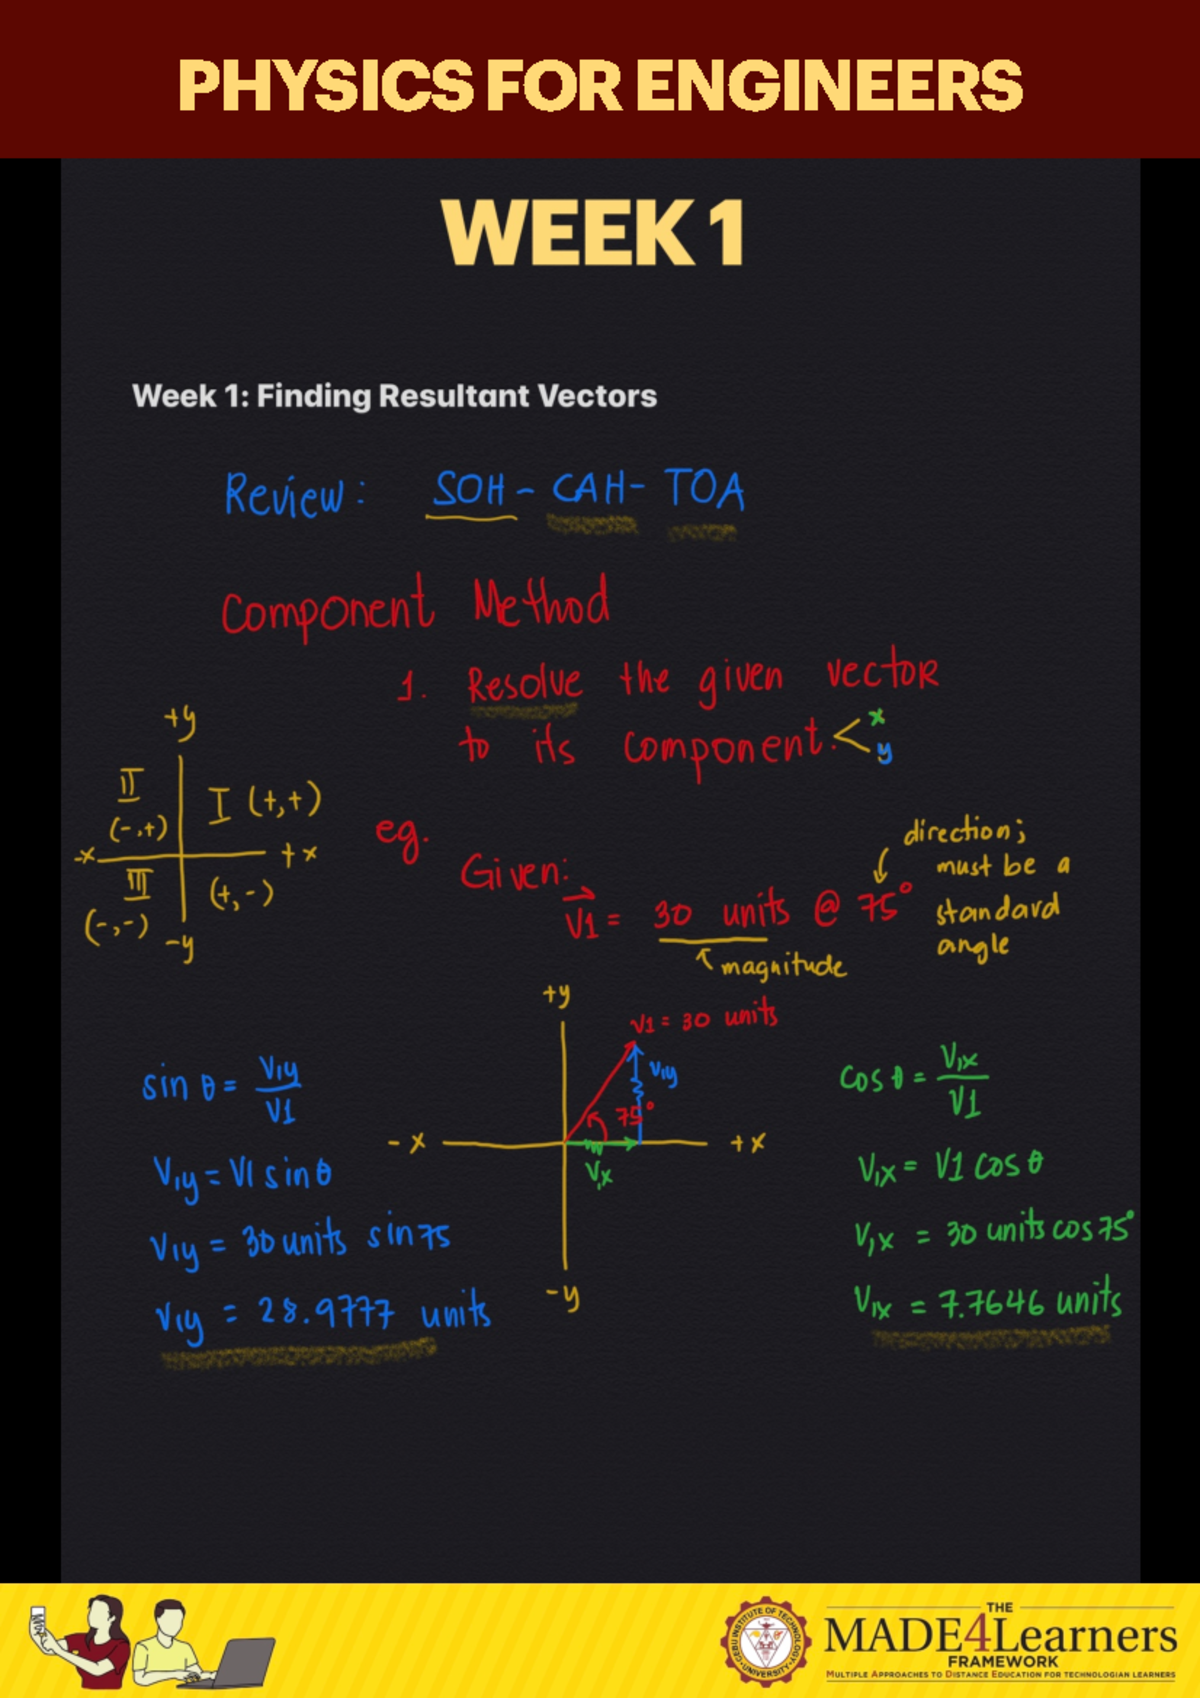 PHYSICS FOR ENGINEERS
WEEK 1
Week 1: Finding Resultant Vectors
Review: SOH - CAH - TOA
Component Method
1. Resolve the given vector
to its component. < x
y
+y
II
(-,+)
I (+,+)
-x
+x
III
(-,-)
(+,-)
-y
eg.
Given:
V1 = 30 units @ 75°
magnitude
direction;
must be a
standard
angle
+y
V1 = 30 units
V1y
75°
- x
+x
V1x
-y
sin θ = V1y / V1
V1y = V1 sin θ
V1y = 30 units sin 75
V1y = 28.9777 units
cos θ = V1x / V1
V1x = V1 cos θ
V1x = 30 units cos 75°
V1x = 7.7646 units
CEBU INSTITUTE OF TECHNOLOGY
UNIVERSITY
THE
MADE4Learners
FRAMEWORK
MULTIPLE APPROACHES TO DISTANCE EDUCATION FOR TECHNOLOGIAN LEARNERS